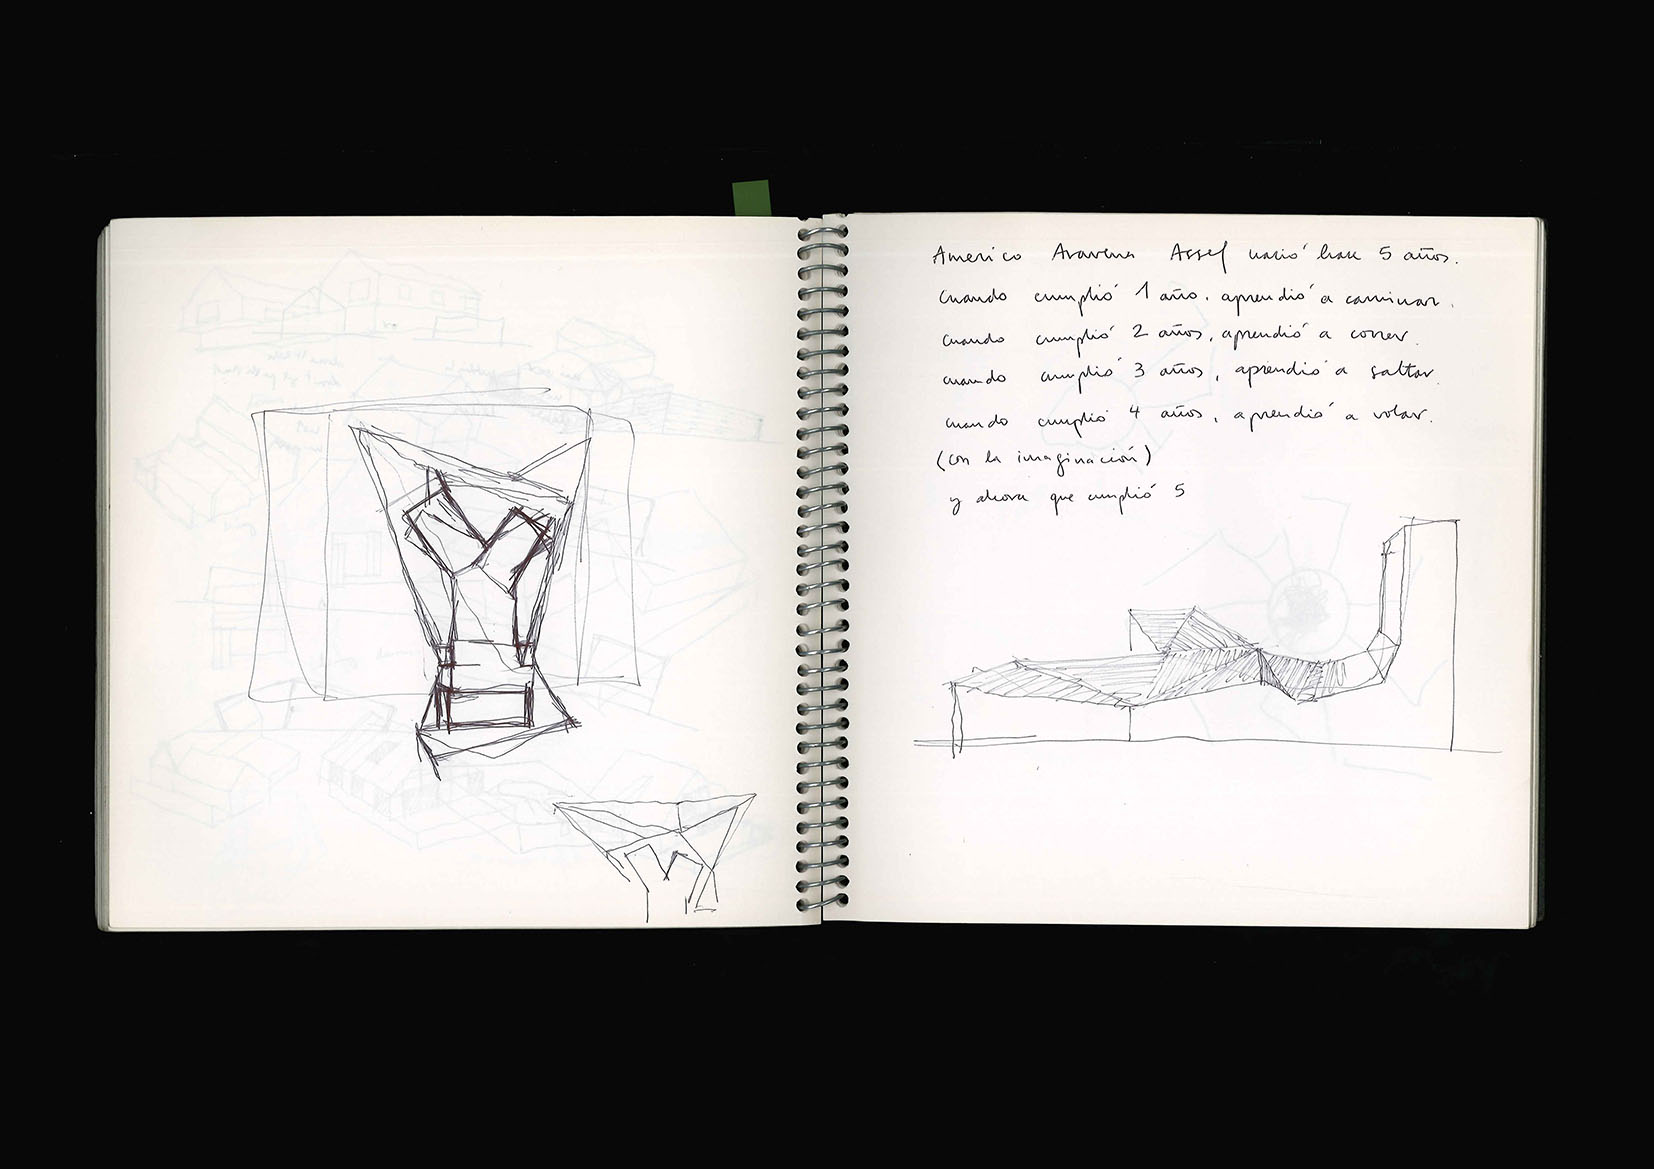 Americo Aravena Assef nació hace 5 años.
Cuando cumplió 1 año, aprendió a caminar.
Cuando cumplió 2 años, aprendió a correr.
cuando cumplió 3 años, aprendió a saltar.
cuando cumplió 4 años, aprendió a volar.
(con la imaginación)
y ahora que cumplió 5